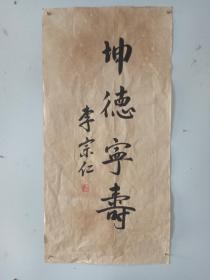 坤德寜壽
李宗仁